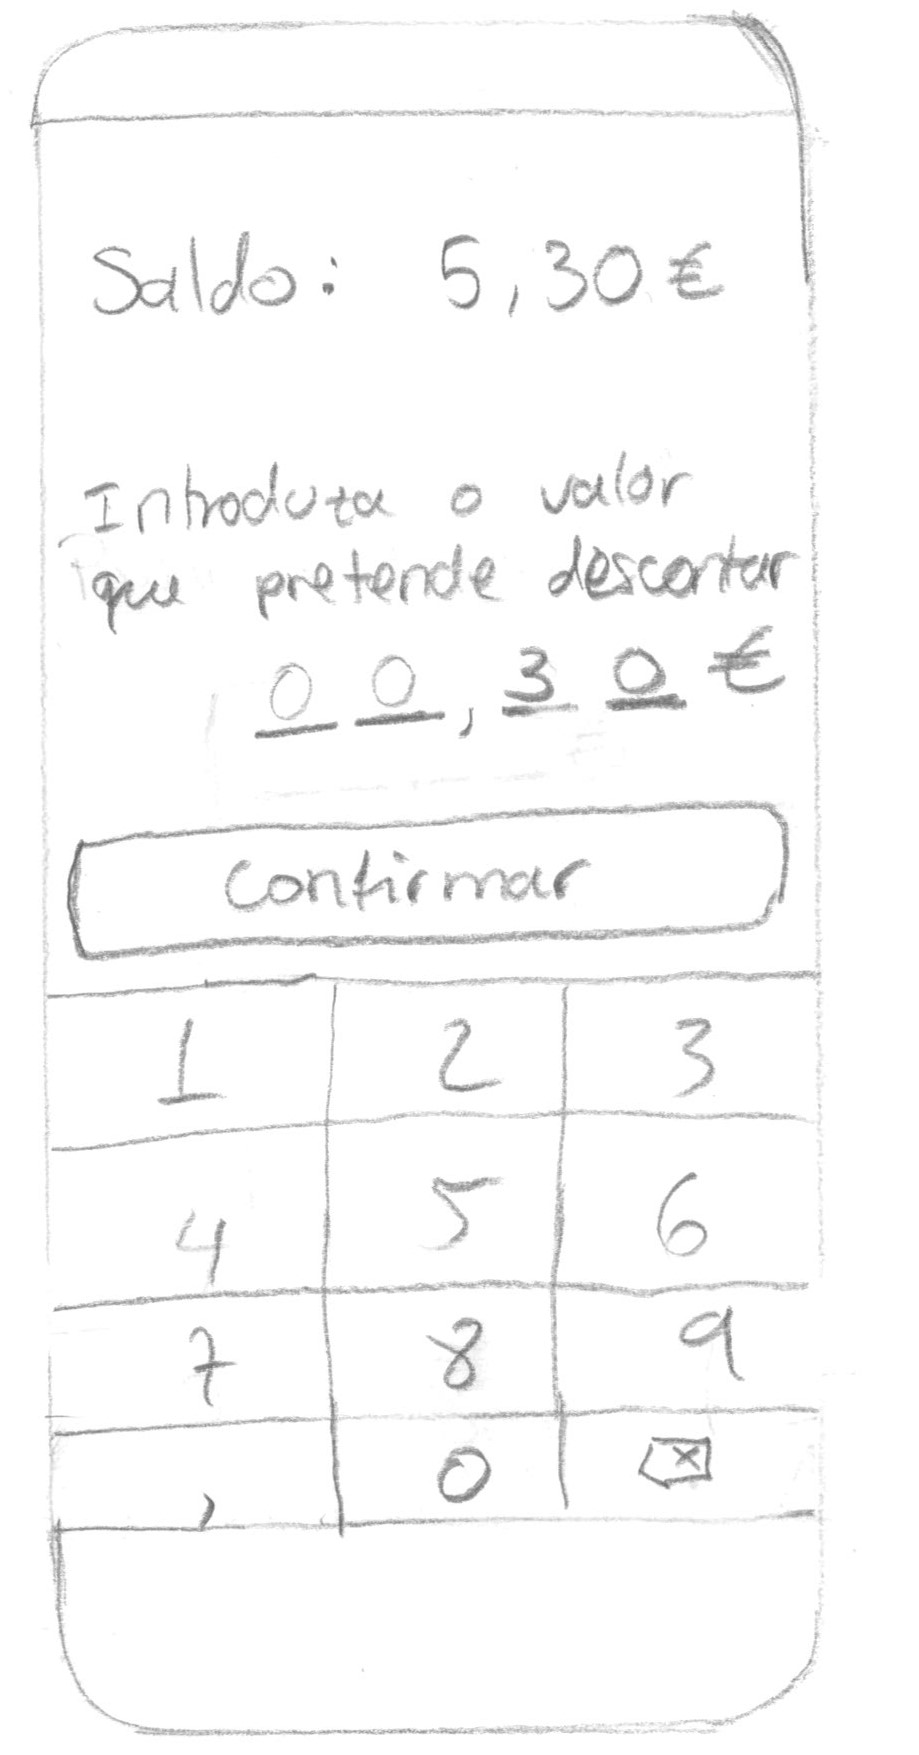 Saldo: 5,30 €
Introduza o valor
que pretende descontar
00,30 €
Confirmar
1 2 3
4 5 6
7 8 9
, 0 x